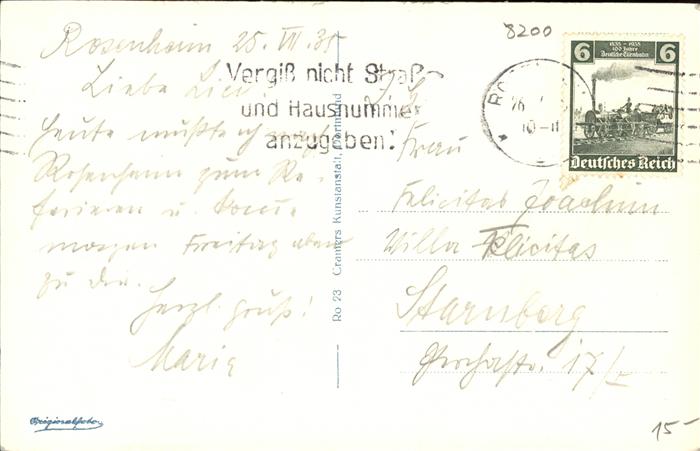 Rosenheim 25. VII. 35
Liebe Lici!
heute mußte ich nach
Rosenheim zum Re-
ferieren u. komme
morgen Freitag abend
zu dir.
Herzl. Gruß!
Marie
Originalfoto
Vergiß nicht Straße
und Hausnummer
anzugeben!
Ro 23 Cramers Kunstanstalt, Dortmund
8200
6 1835 - 1935 6
100 Jahre
Deutsche Eisenbahn
Deutsches Reich
26.
10-11
Frau
Felicitas Joachim
Villa Felicitas
Starnberg
17/I
15-